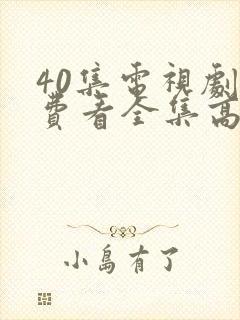 40集電視劇
費看全集高
小島有了